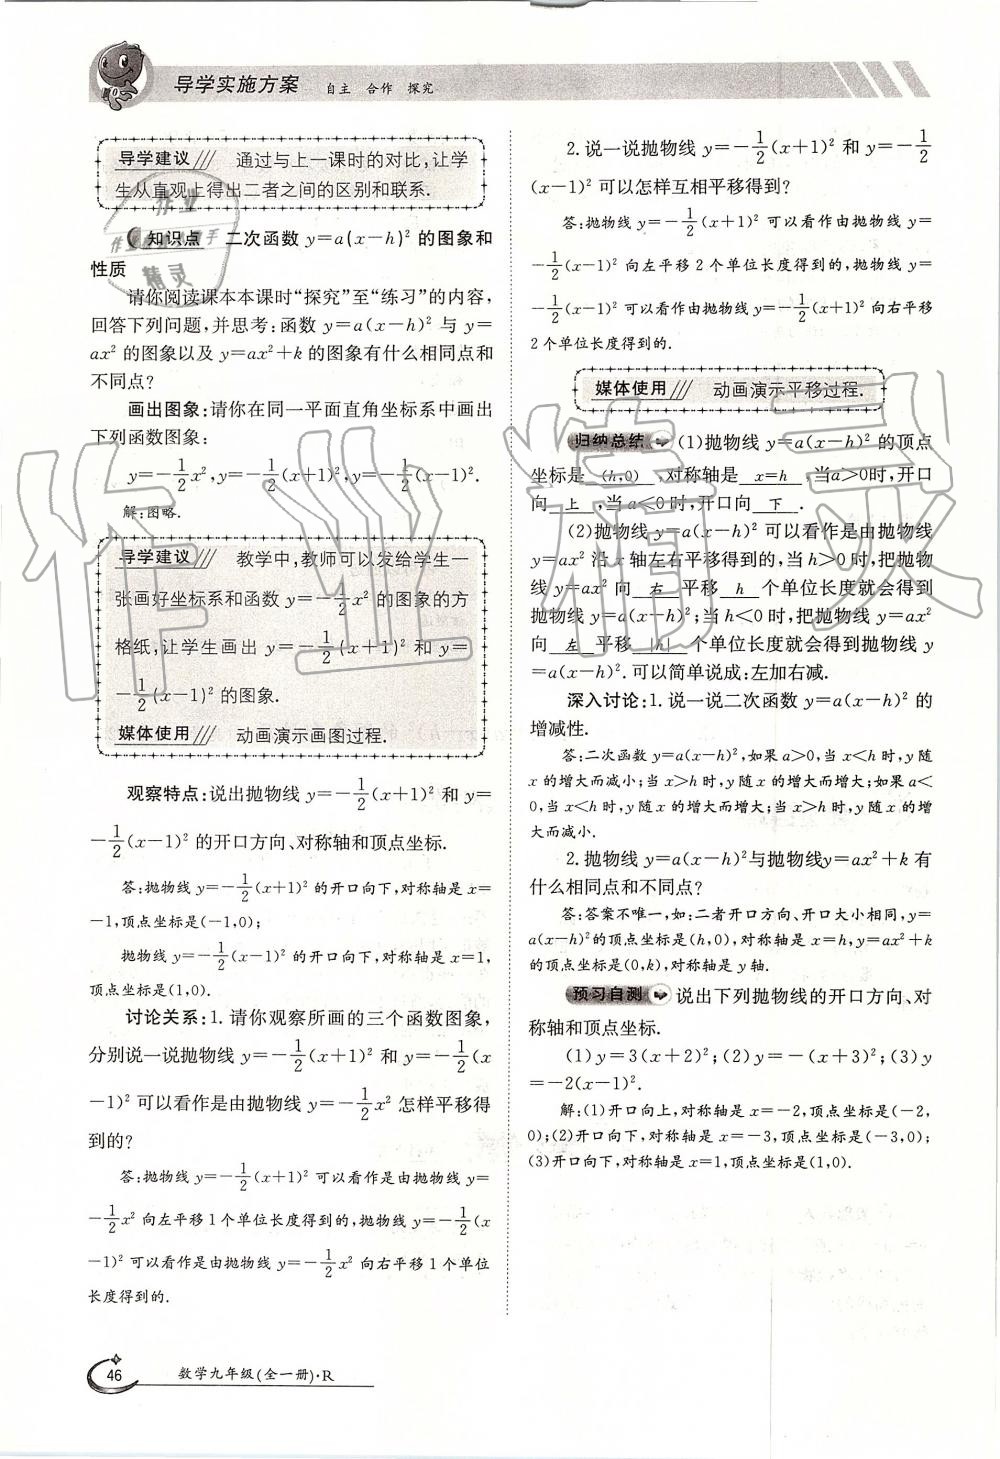 导学实施方案 自主 合作 探究
导学建议/// 通过与上一课时的对比,让学
生从直观上得出二者之间的区别和联系.
知识点 二次函数 y=a(x-h)² 的图象和
性质
请你阅读课本本课时“探究”至“练习”的内容,
回答下列问题,并思考:函数 y=a(x-h)² 与 y=
ax² 的图象以及 y=ax²+k 的图象有什么相同点和
不同点?
画出图象:请你在同一平面直角坐标系中画出
下列函数图象:
y=-1/2x²,y=-1/2(x+1)²,y=-1/2(x-1)².
解:图略.
导学建议/// 教学中,教师可以发给学生一
张画好坐标系和函数 y=-1/2x² 的图象的方
格纸,让学生画出 y=-1/2(x+1)² 和 y=
-1/2(x-1)² 的图象.
媒体使用/// 动画演示画图过程.
观察特点:说出抛物线 y=-1/2(x+1)² 和 y=
-1/2(x-1)² 的开口方向、对称轴和顶点坐标.
答:抛物线 y=-1/2(x+1)² 的开口向下,对称轴是 x=
-1,顶点坐标是(-1,0);
抛物线 y=-1/2(x-1)² 的开口向下,对称轴是 x=1,
顶点坐标是(1,0).
讨论关系:1.请你观察所画的三个函数图象,
分别说一说抛物线 y=-1/2(x+1)² 和 y=-1/2(x
-1)² 可以看作是由抛物线 y=-1/2x² 怎样平移得
到的?
答:抛物线 y=-1/2(x+1)² 可以看作是由抛物线 y=
-1/2x² 向左平移1个单位长度得到的,抛物线 y=-1/2(x
-1)² 可以看作是由抛物线 y=-1/2x² 向右平移1个单位
长度得到的.
2.说一说抛物线 y=-1/2(x+1)² 和 y=-1/2
(x-1)² 可以怎样互相平移得到?
答:抛物线 y=-1/2(x+1)² 可以看作由抛物线 y=
-1/2(x-1)² 向左平移2个单位长度得到的,抛物线 y=
-1/2(x-1)² 可以看作由抛物线 y=-1/2(x+1)² 向右平移
2个单位长度得到的.
媒体使用/// 动画演示平移过程.
归纳总结 (1)抛物线 y=a(x-h)² 的顶点
坐标是 (h,0) ,对称轴是 x=h ,当a>0时,开口
向 上 ,当 a<0 时,开口向 下 .
(2)抛物线 y=a(x-h)² 可以看作是由抛物线
y=ax² 沿 x 轴左右平移得到的,当 h>0时,把抛物
线 y=ax² 向 右 平移 h 个单位长度就会得到
抛物线 y=a(x-h)²;当 h<0 时,把抛物线 y=ax²
向 左 平移 |h| 个单位长度就会得到抛物线 y
=a(x-h)².可以简单说成:左加右减.
深入讨论:1.说一说二次函数 y=a(x-h)² 的
增减性.
答:二次函数 y=a(x-h)²,如果 a>0,当 x<h 时,y 随
x 的增大而减小;当 x>h 时,y 随 x 的增大而增大;如果 a<
0,当 x<h 时,y 随 x 的增大而增大;当 x>h 时,y 随 x 的增
大而减小.
2.抛物线 y=a(x-h)²与抛物线y=ax²+k 有
什么相同点和不同点?
答:答案不唯一,如:二者开口方向、开口大小相同,y=
a(x-h)²的顶点坐标是(h,0),对称轴是 x=h,y=ax²+k
的顶点坐标是(0,k),对称轴是 y 轴.
预习自测 说出下列抛物线的开口方向、对
称轴和顶点坐标.
(1)y=3(x+2)²;(2)y=-(x+3)²;(3)y
=-2(x-1)².
解:(1)开口向上,对称轴是 x=-2,顶点坐标是(-2,
0);(2)开口向下,对称轴是 x=-3,顶点坐标是(-3,0);
(3)开口向下,对称轴是 x=1,顶点坐标是(1,0).
46 数学九年级(全一册)·R
作业精灵